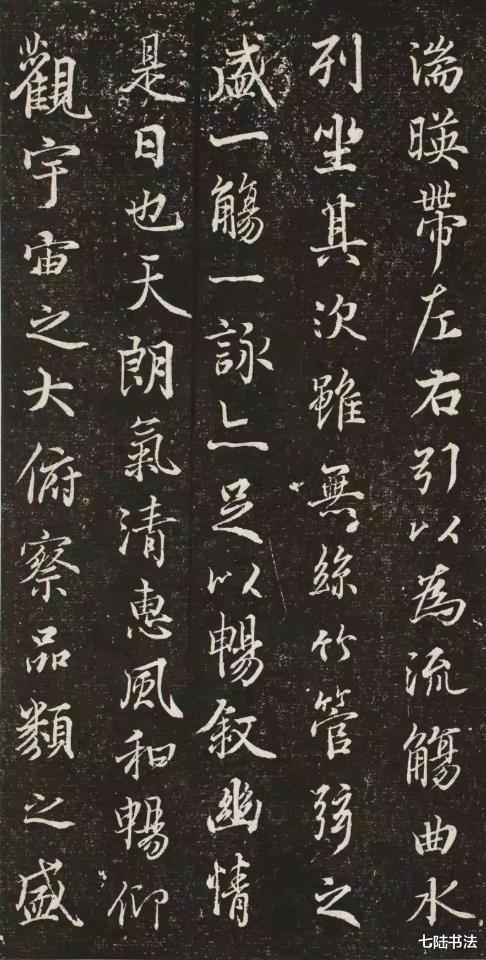 湍暎帶左右引以為流觴曲水
列坐其次雖無絲竹管弦之
盛一觴一詠亦足以暢叙幽情
是日也天朗氣清惠風和暢仰
觀宇宙之大俯察品類之盛
七陆书法